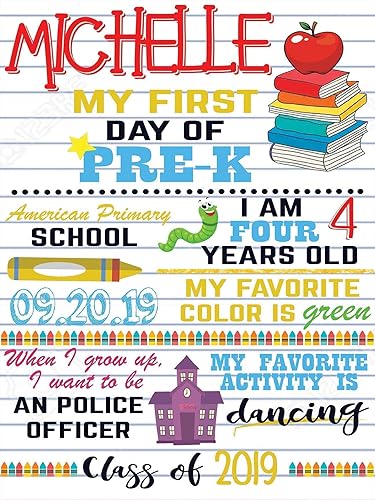 MICHELLE
MY FIRST
DAY OF
PRE-K
American Primary
SCHOOL
09.20.19
I AM
FOUR 4
YEARS OLD
MY FAVORITE
COLOR IS green
When I grow up,
I want to be
AN POLICE
OFFICER
MY FAVORITE
ACTIVITY IS
dancing
Class of 2019